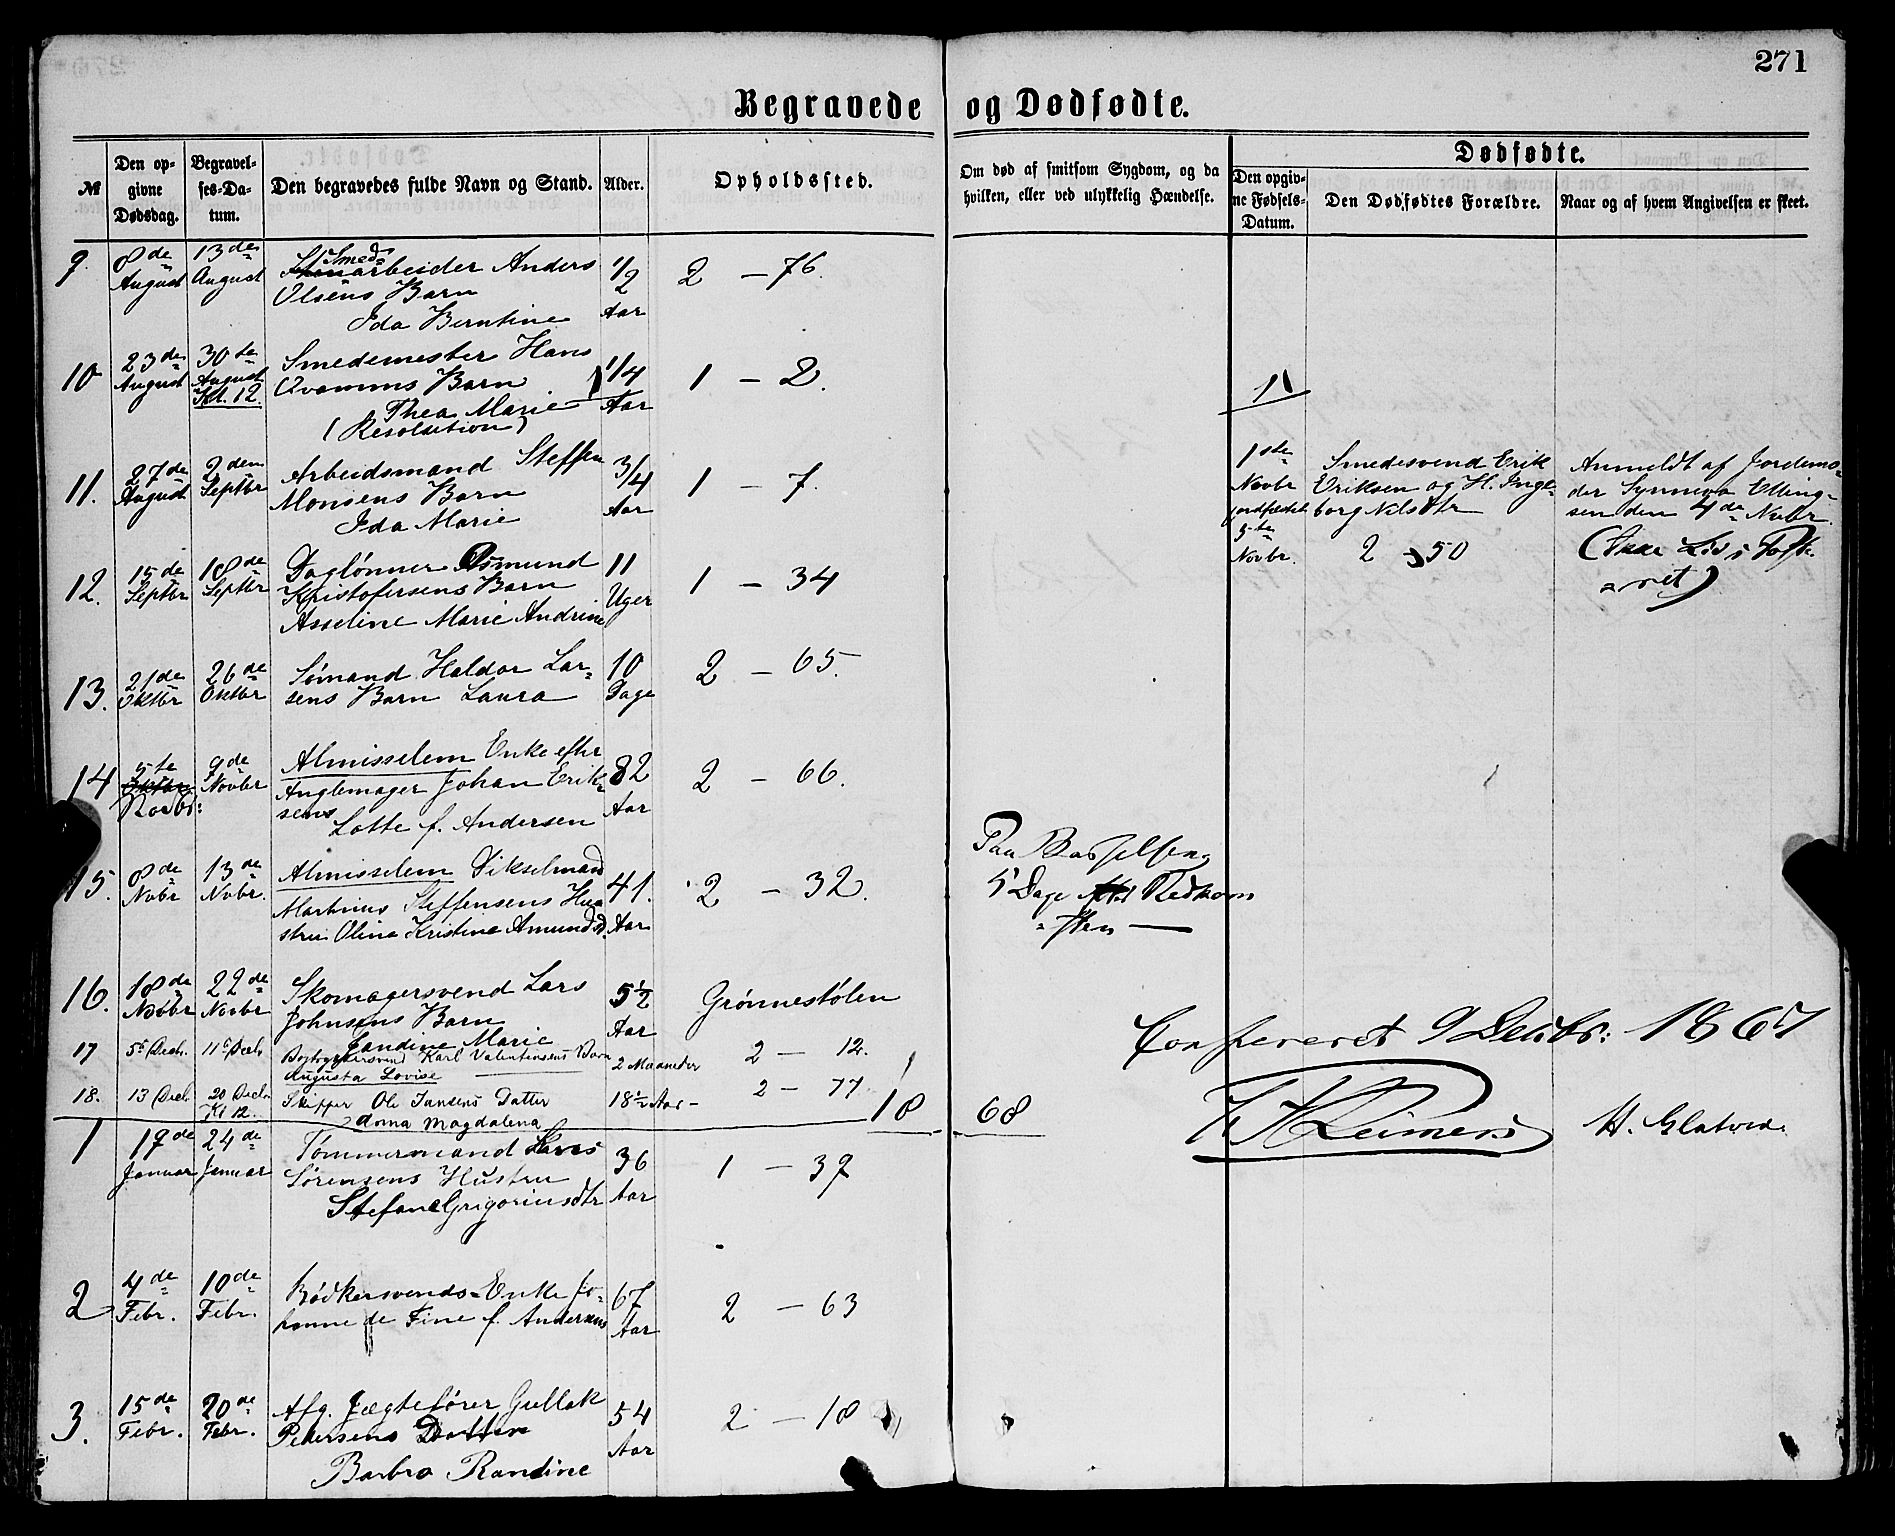 271
Begravede og Dødfødte.
№
Den opgivne Dødsdag.
Begravelses-Datum.
Den begravedes fulde Navn og Stand.
Alder.
Opholdssted.
Om død af smitsom Sygdom, og da hvilken, eller ved ulykkelig Hændelse.
Dødfødte.
Den opgivne Fødsels-Datum.
Den Dødfødtes Forældre.
Naar og af hvem Angivelsen er skeet.
9. 8de August 13de August Smedarbeider Anders 1/2 Aar 2 – 76.
Olsens Barn
Ida Berntine
10 23de August 30te August Kl. 12. Smedemester Hans 1/4 Aar 1 – 2.
Qvamms Barn
Thea Marie
(Resolution)
11. 27de August 2den Septbr Arbeidsmand Steffen 3/4 Aar 1 – 7.
Monsens Barn
Ida Marie
12. 15de Septbr 18de Septbr Daglønner Asmund 11 Uger 1 – 34
Kristofersens Barn
Asseline Marie Andrine
13. 21de Oktbr 26de Oktbr Sømand Haldor Lar- 10 Dage 2 – 65.
sens Barn Laura
14 5te Novbr: 9de Novbr Almisselem Enke efter 82 Aar 2 – 66.
Anglemager Johan Erik-
sens
Lotte f. Andersen
15. 8de Nvbr 13de Nvbr. Almisselem Vikselmand 41. Aar 2 – 32.
Martinus Steffensens Hu-
stru Olina Kristine Amundsd.
16. 18de Novbr 22de Novbr Skomagersvend Lars 5 1/2 Aar Grønnestølen
Johnsens Barn
Jandine Marie
17 5te Decb. 11te Decb. Bogtrykkersvend Karl Valentinsens Barn 2 Maaneder 2 – 12.
Augusta Lovise
18. 13 Decb. 20 Decb. Kl 12. Skipper Ole Jansens Datter 18 1/2 Aar – 2 – 77
Anna Magdalena
18 68
1 17de Januar 24de Januar Tømmermand Lars 36 Aar 1 – 39
Sørensens Hustru
Stefane Grigoriusdtr
2 4de Febr. 10de Febr. Bødkersvends-Enke Jo- 67 Aar 2 – 63
hanne de Fine f. Andersen
3. 15de Febr. 20de Febr. Afg. Jægtefører Gullak 54 Aar 2 – 18
Petersens Datter
Barbro Randine
5 Dage
1
1ste Novbr jordfæstet 5te Novbr.
Smedesvend Erik
Eriksen og H. Inge-
borg Nilsdtr
2 – 50
Anmeldt af Jordemo-
der Synneva Elling-
sen den 4de Nvbr.
Confereret 9 Decbr: 1867
H. Glatved.